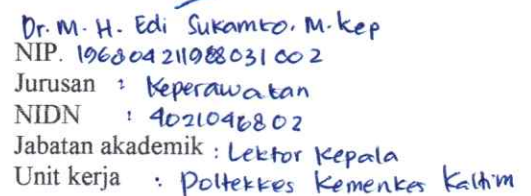 Dr. M. H. Edi Sukamto. M. kep
NIP. 196804211988031002
Jurusan : Keperawatan
NIDN : 4021046802
Jabatan akademik : Lektor Kepala
Unit kerja : Poltekkes Kemenkes Kaltim